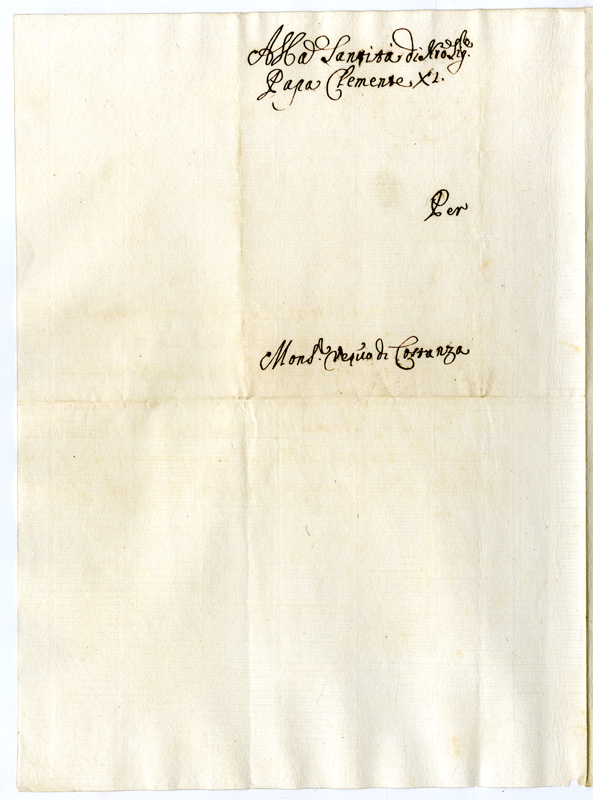 Alla Santità di Nro Sigre
Papa Clemente XI.
Per
Monsr. Vescuo di Costanza